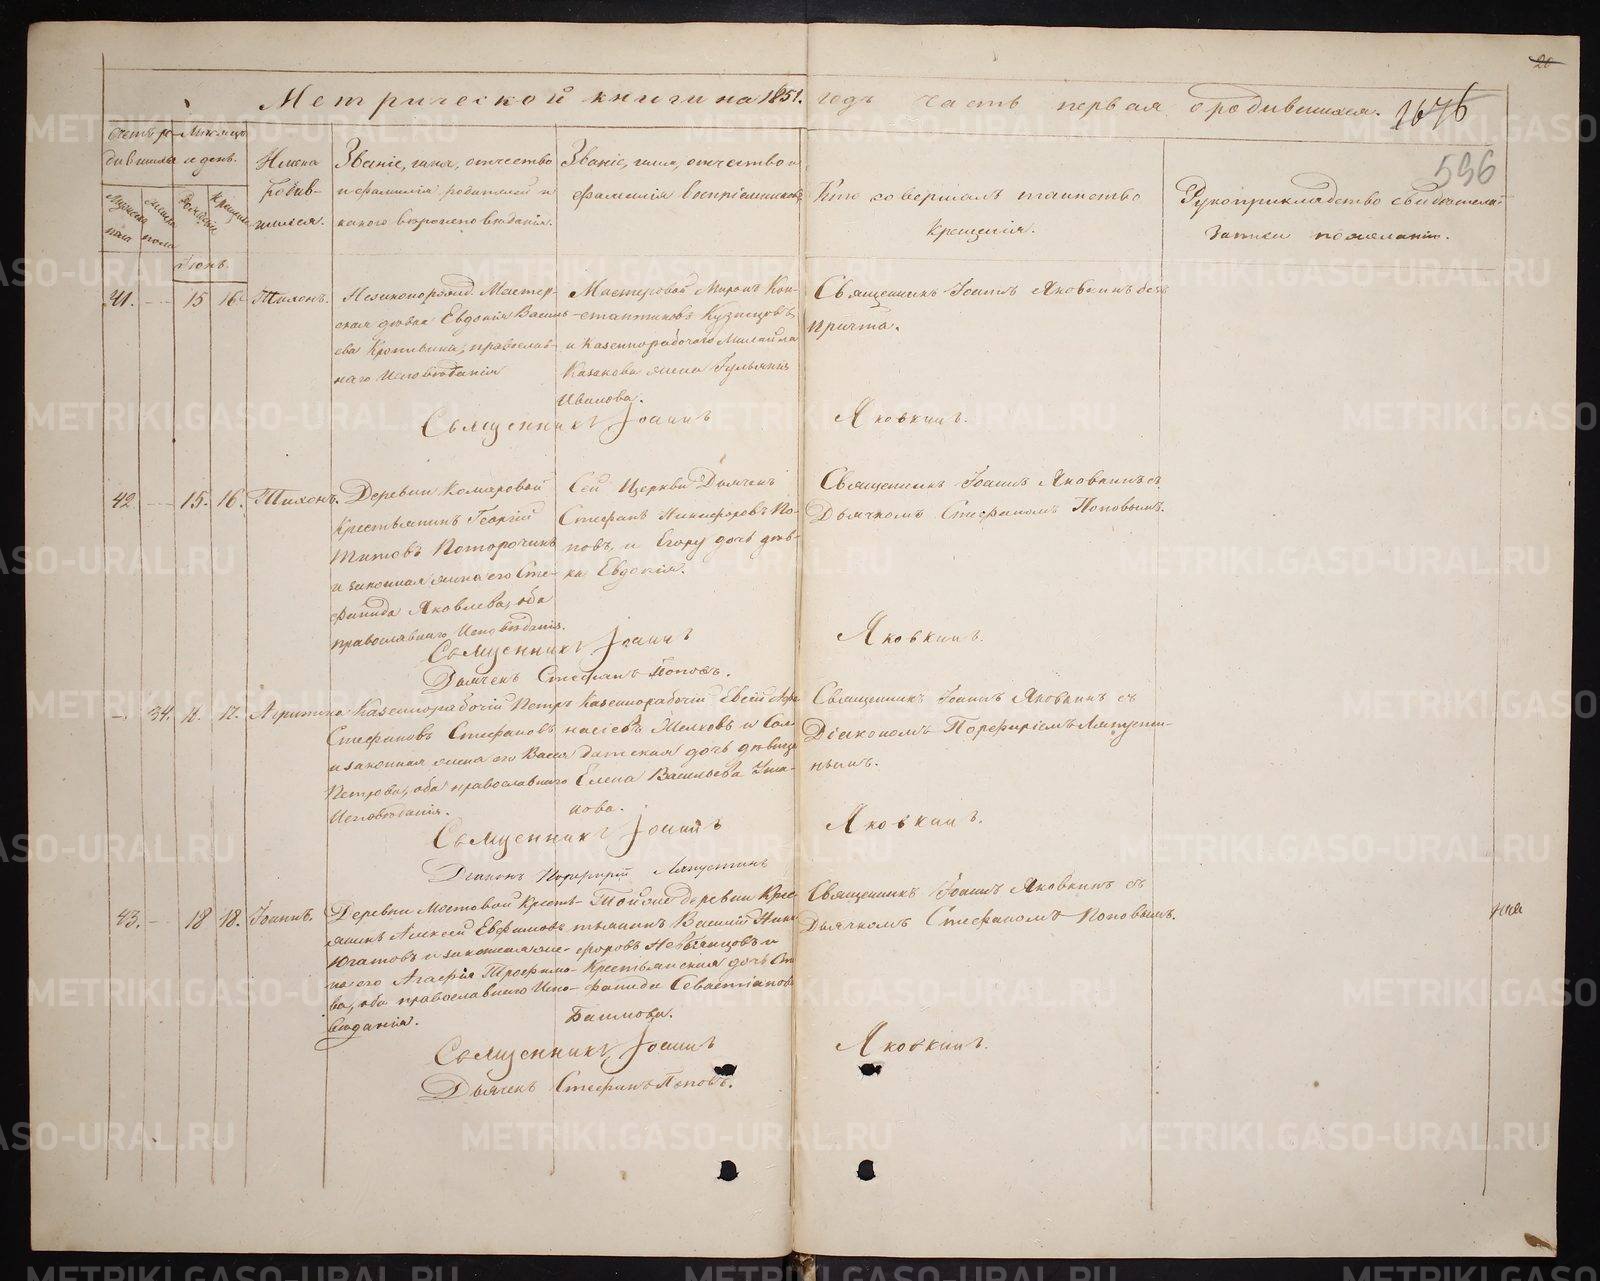 26
Метрической книги на 1851. годъ часть первая о родившихся. 1676
596
Счетъ ро-
дившихся
Мужеска
пола
Женска
пола
Мѣсяцъ
и день.
Рожденія
Крещенія
Имена
родив-
шихся.
Званіе, имя, отчество
и фамилія родителей и
какого вѣроисповѣданія.
Званіе, имя, отчество и
фамилія воспріемниковъ.
Кто совершалъ таинство
крещенія.
Рукоприкладство свидѣтелей
записи по желанію.
Іюнь.
41. 15 16. Тихонъ.
Незаконорожд. Мастер-
ская дѣвка Евдокія Василь-
ева Кропивина, православ-
наго исповѣданія
Мастеровой Миронъ Кон-
стантиновъ Кузнецовъ
и Казеннорабочаго Михайла
Казакова жена Гульянія
Иванова.
Священникъ Іоаннъ Яковкинъ безъ
причта.
Священникъ Іоаннъ Яковкинъ.
42 15. 16. Тихонъ.
Деревни Комаровой
Крестьянинъ Георгій
Титовъ Поторочинъ
и законная жена его Сте-
фанида Яковлева, оба
православнаго исповѣданія.
Сей Церкви Дьячекъ
Стефанъ Никифоровъ По-
повъ, и Егору дочь дѣв-
ка Евдокія.
Священникъ Іоаннъ Яковкинъ съ
Дьячкомъ Стефаномъ Поповымъ.
Священникъ Іоаннъ Яковкинъ.
Дьячекъ Стефанъ Поповъ.
34. 11. 17. Агрипина
Казеннорабочій Петръ
Стефановъ Стефановъ
и законная жена его Васса
Петрова, оба православнаго
исповѣданія.
Казеннорабочій Евсій Афа-
насіевъ Мелковъ и Сол-
датская дочь дѣвица
Елена Васильева Ума-
нова.
Священникъ Іоаннъ Яковкинъ съ
Діакономъ Порфиріемъ Ляпусти-
нымъ.
Священникъ Іоаннъ Яковкинъ.
Діаконъ Порфирій Ляпустинъ
43. 18 18. Іоаннъ.
Деревни Мостовой Кресть-
янинъ Алексей Евфимовъ
Югатовъ и законная же-
на его Агафія Трофимо-
ва, оба православнаго испо-
вѣданія.
Той же деревни Кре-
стьянинъ Василій Ники-
форовъ Невьянцовъ и
Крестьянская дочь Сте-
фанида Севастіанова
Баимова.
Священникъ Іоаннъ Яковкинъ съ
Дьячкомъ Стефаномъ Поповымъ.
Священникъ Іоаннъ Яковкинъ.
Дьячекъ Стефанъ Поповъ.
METRIKI.GASO-URAL.RU